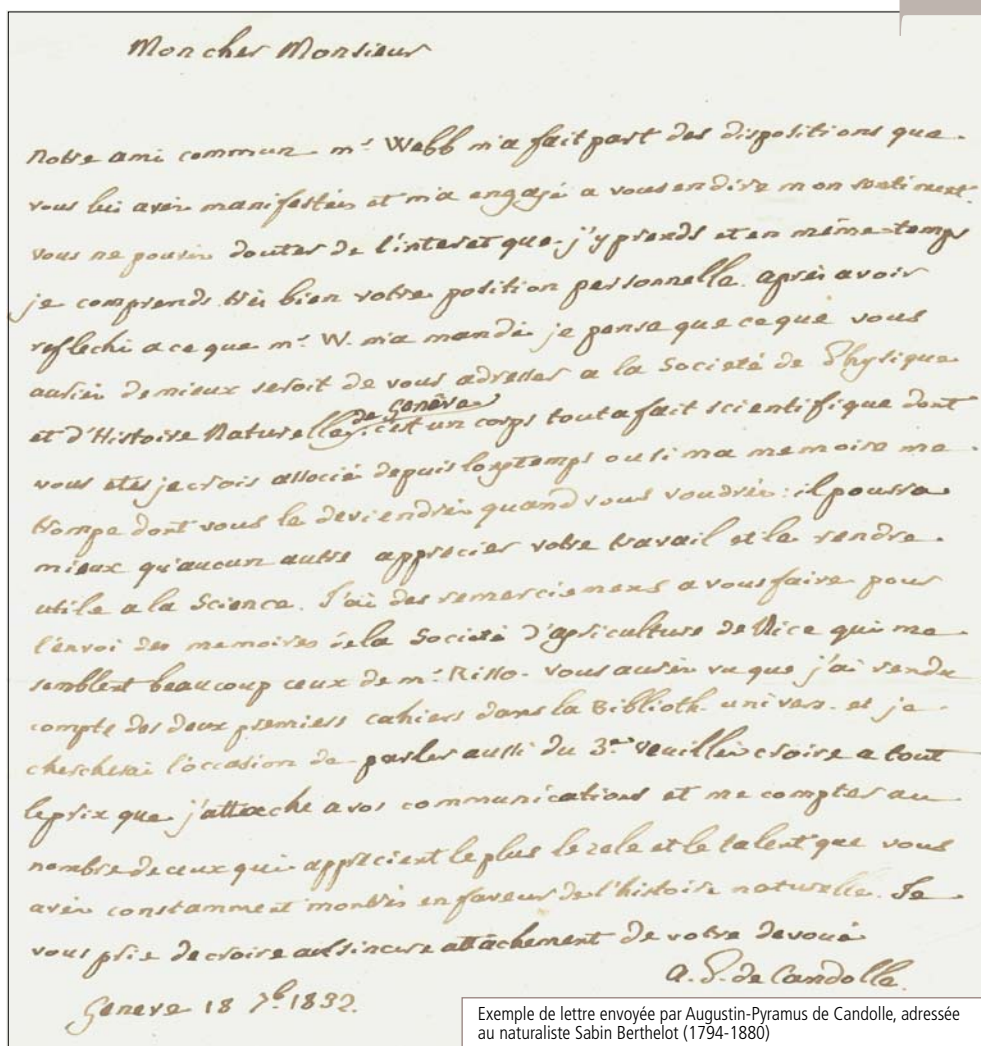 Mon cher Monsieur
Notre ami commun mr. Webb m'a fait part des dispositions que
vous lui avez manifestées et m'a engagé a vous en dire mon sentiment.
vous ne pouvez douter de l'interet que j'y prends et en même temps
je comprends très bien votre position personnelle. après avoir
reflechi a ce que mr. W. m'a mandé je pense que ce que vous
auriez de mieux seroit de vous adresser a la Societé de Physique
et d'Histoire Naturelle de Genève; c'est un corps tout a fait scientifique dont
vous etes je crois associé depuis longtemps ou si ma memoire me
trompe dont vous le deviendrez quand vous voudrez: il pourra
mieux qu'aucun autre apprécier votre travail et le rendre
utile a la Science. J'ai des remerciemens a vous faire pour
l'envoi des memoires de la Societé d'agriculture de Nice qui me
semblent beaucoup ceux de mr. Risso. vous aurez vu que j'ai rendu
compte des deux premiers cahiers dans la Biblioth. univers. et je
chercherai l'occasion de parler aussi du 3e. veuillez croire a tout
le prix que j'attache a vos communications et me compter au
nombre de ceux qui apprécient le plus le zele et le talent que vous
avez constamment montrés en faveur de l'histoire naturelle. Je
vous prie de croire au sincere attachement de votre devoué
A. P. de Candolle.
Geneve 18 7b. 1832.
Exemple de lettre envoyée par Augustin-Pyramus de Candolle, adressée
au naturaliste Sabin Berthelot (1794-1880)